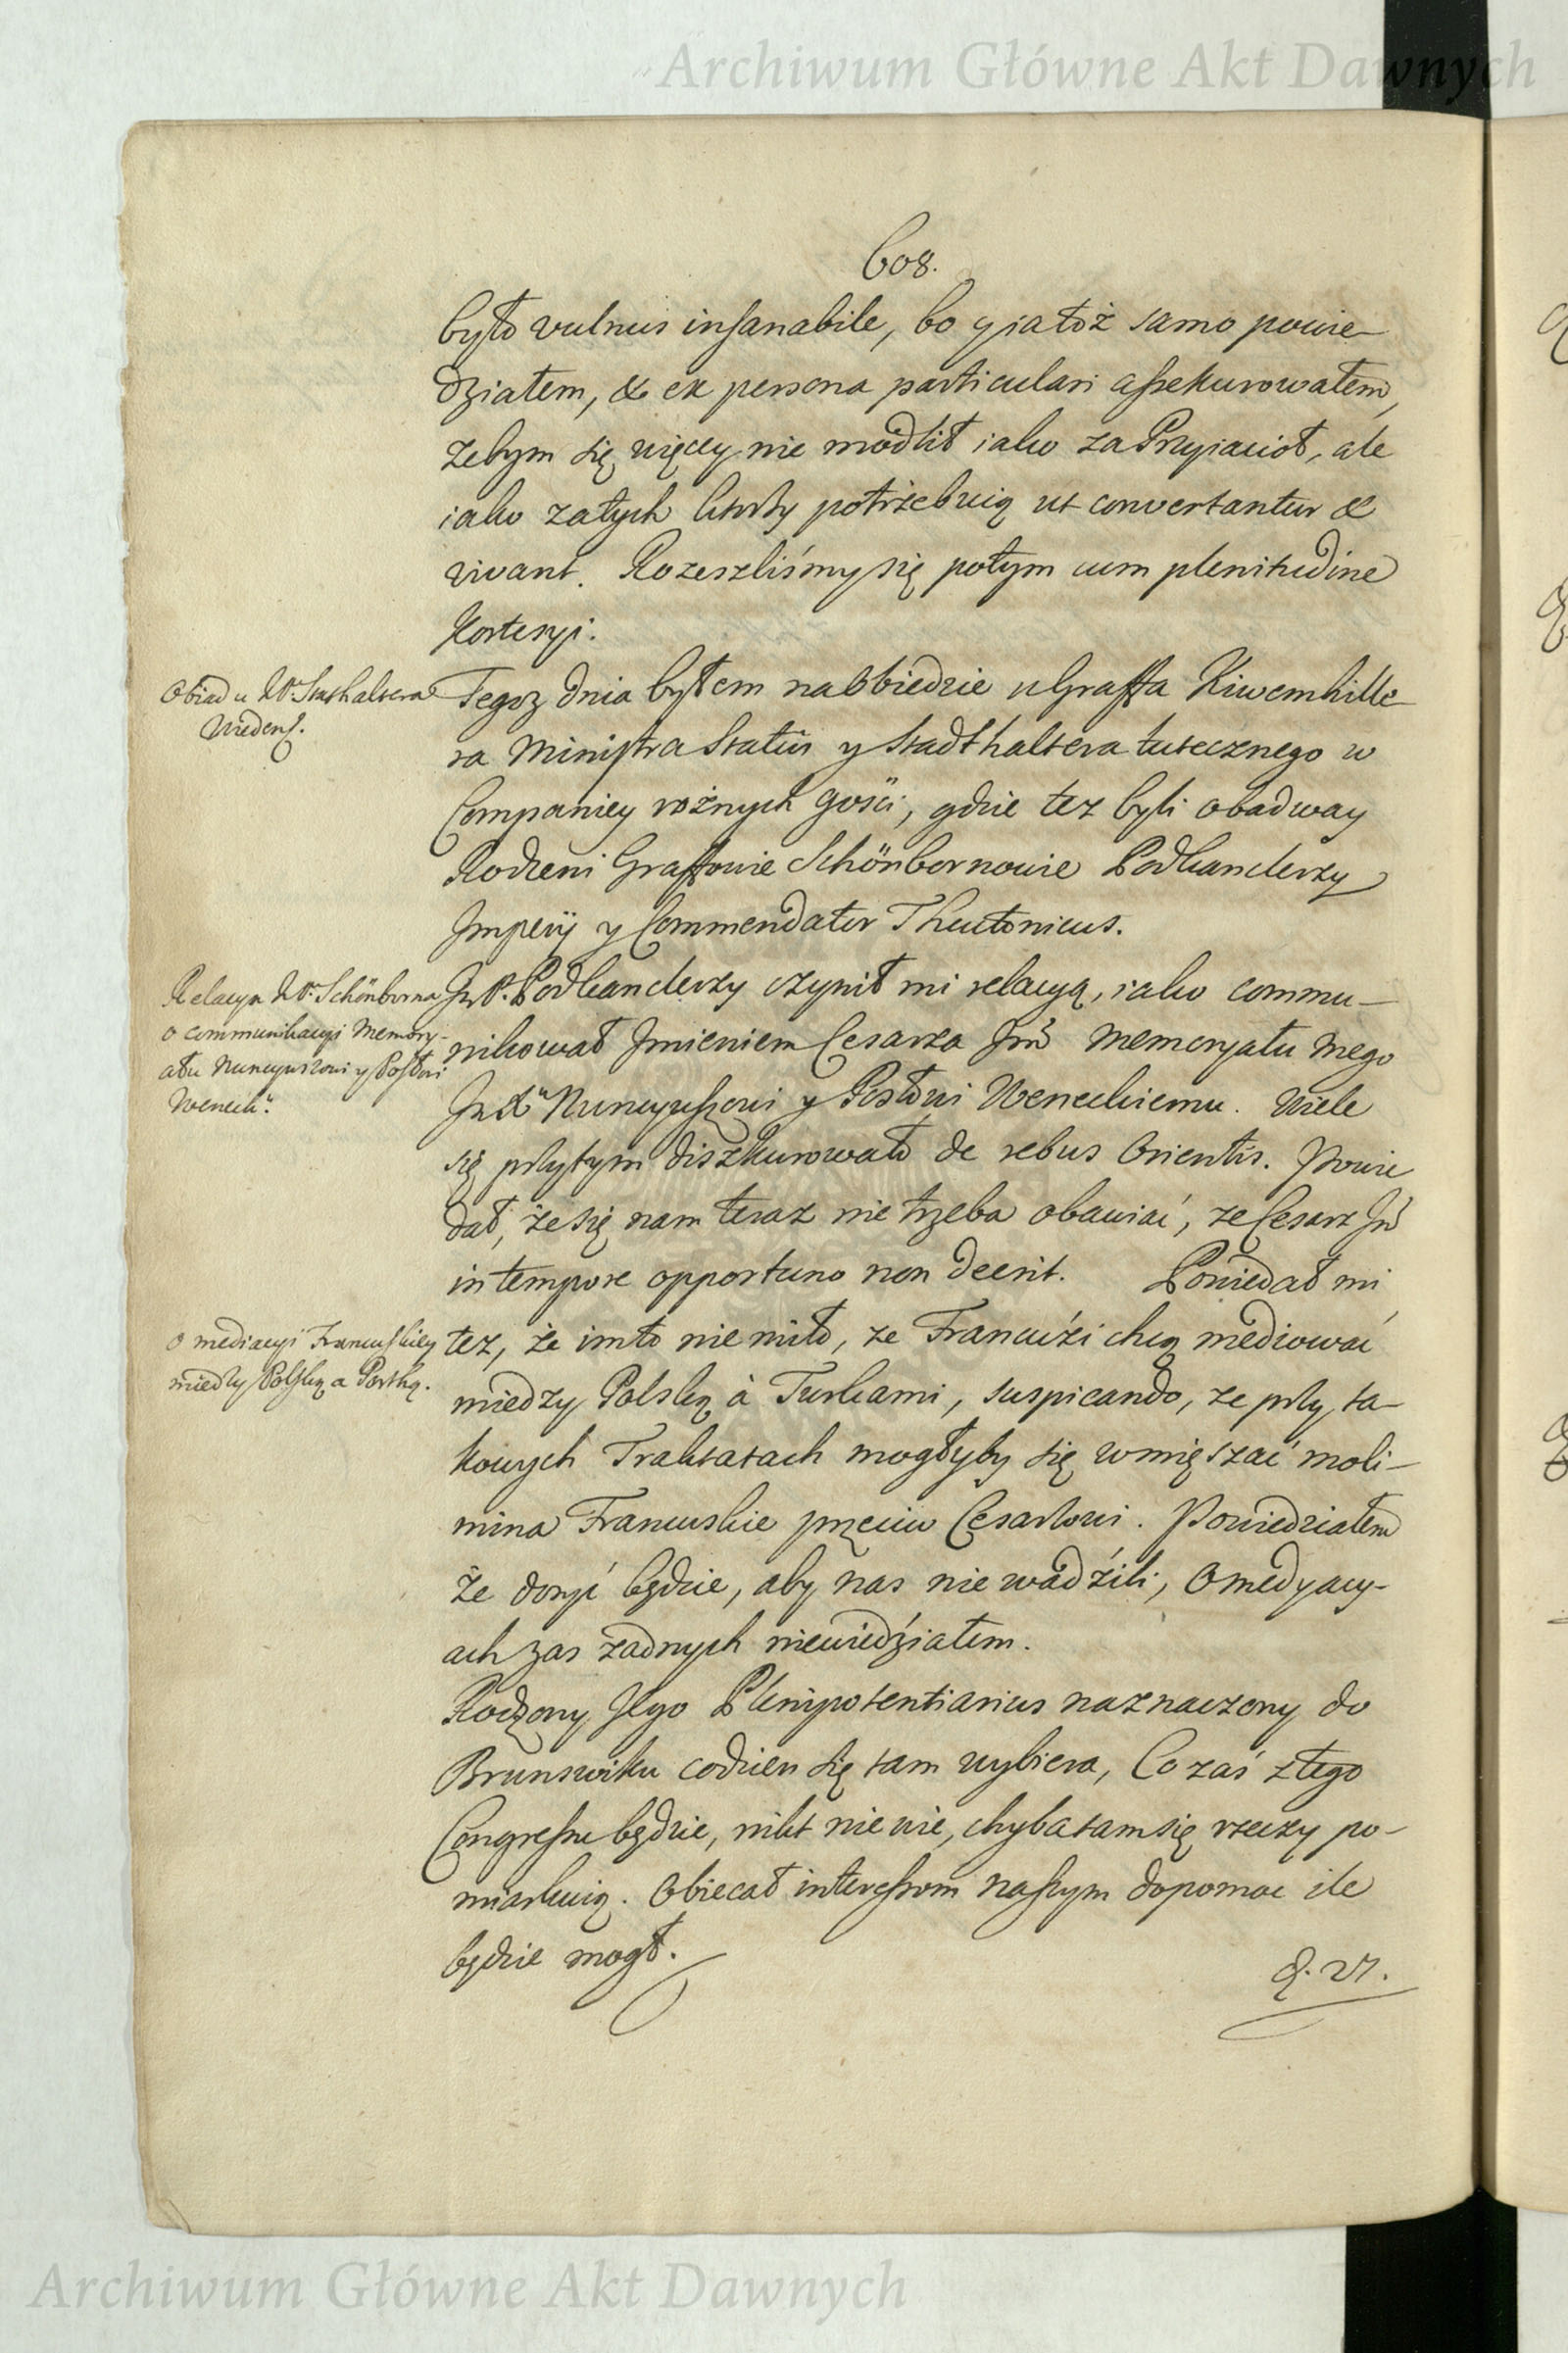 Archiwum Główne Akt Dawnych
608.
było vulnus insanabile, bo y ia toż samo powie-
działem, & ex persona particulari assekurowałem,
żebym się więcey nie modlił iako za Przyiacioł, ale
iako za tych ktorży potrżebuią ut convertantur &
vivant. Rozeszliśmy się potym cum plenitudine
Kortezyi.
Obiad u Stathaltera
Wiedens.
Tegoz dnia byłem na Obiedzie u Graffa Kiwemhille-
ra Ministra Status y Stadthaltera tutecznego w
Companiey rożnych gości, gdzie tez byli obadway
Rodzeni Graffowie Schönbornowie Podkanclerzy
Imperij y Commendator Theutonicus.
Relacya Schönborna
o communikacyi Memory-
ału Nuncyuszowi y Posłowi
Weneck:
Podkanclerzy czynił mi relacyą, iako commu-
nikował Imieniem Cesarza Jmć Memoryału Mego
Nuncyuszowi y Posłowi Weneckiemu. Wiele
się przytym diszkurowało de rebus Orientis. Powie
dał, że się nam teraz nie trzeba obawiać, ze Cesarz Jmć
in tempore opportuno non deerit. Powiedał mi
o mediacyi Francuskiey
miedzy Polską a Portą.
tez, że im to nie miło, ze Francuźi chcą mediować
miedzy Polską à Turkami, suspicando, ze przy ta-
kowych Traktatach mogłyby się wmięszać moli-
mina Francuskie przeciw Cesarzowi. Powiedziałem
że dosyć będzie, aby nas nie wadźili, O medyacy-
ach zas żadnych niewiedźiałem.
Rodzony Jego Plenipotentiarius naznaczony do
Brunswiku codzien się tam wybiera, Co zaś z tego
Congressu będzie, nikt nie wie, chyba tam się rzeczy po-
miarkuią. Obiecał interessom naszym dopomoc ile
będzie mogł.
D. 27.
Archiwum Główne Akt Dawnych